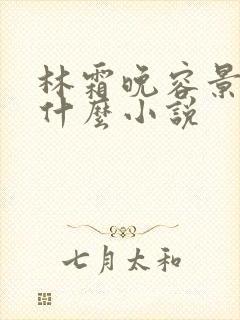 林霜晚容景
什麼小說
七月太和